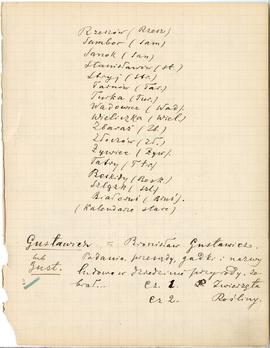 Rzeszów (Rzesz)
Sambor (Sam)
Sanok (San)
Stanisławów (St.)
Stryj (Str.)
Tarnów (Tar.)
Turka (Tur.)
Wadowice (Wad).
Wieliczka (Wiel)
Zbaraż (Zb)
Złoczów (Zł.)
Żywiec (Żyw).
Tatry (Ttr.)
Beskidy (Besk)
Szląsk (Szl)
(Kalendarze stare)
Gustawicz = Bronisław Gustawicz.
lub Podania, przesądy, gadki i nazwy
Gust. ludowe w dziedzinie przyrody. Ze-
brał... Cz. 1. Zwierzęta
Cz 2. Rośliny.